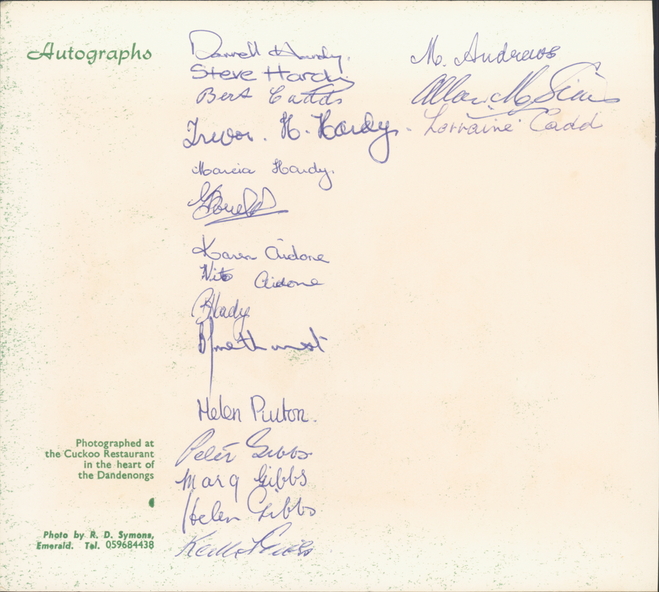 Autographs
Darrell Hardy.
Steve Hardy
Bert Cadd
Trevor. H. Hardy.
Marcia Hardy.
Karen Aidone
Vito Aidone
Helen Puxton.
Peter Gibbs.
Marg Gibbs
Helen Gibbs
Keith Gibbs
M. Andrews
Allan
Lorraine Cadd
Photographed at
the Cuckoo Restaurant
in the heart of
the Dandenongs
Photo by R. D. Symons,
Emerald. Tel. 059684438